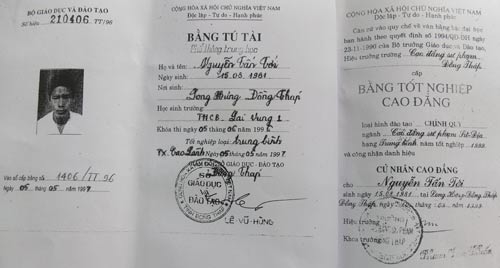 BỘ GIÁO DỤC VÀ ĐÀO TẠO
Số hiệu 210406 TT/96
Vào sổ cấp bằng số 1406/TT.96
Ngày 05 tháng 05 năm 1997
CỘNG HÒA XÃ HỘI CHỦ NGHĨA VIỆT NAM
Độc lập - Tự do - Hạnh phúc
BẰNG TÚ TÀI
Phổ thông trung học
Họ và tên: Nguyễn Tấn Tới
Ngày sinh: 15.03.1981
Nơi sinh
Long Hưng Đồng Tháp
Học sinh trường:
THCB. Lai Vung 1
Khóa thi ngày 05 tháng 06 năm 199
Tốt nghiệp loại: trung bình
Cao Lãnh, Ngày 05 tháng 05 năm 1997
GIÁM ĐỐC SỞ GIÁO DỤC - ĐÀO TẠO
Đồng Tháp
SỞ
GIÁO DỤC
VÀ
ĐÀO TẠO
LÊ VŨ HÙNG
CỘNG HÒA XÃ HỘI CHỦ NGHĨA VIỆT NAM
Độc lập - Tự do - Hạnh phúc
Căn cứ vào quy chế về văn bằng bậc đại học
ban hành theo quyết định số 1994/QĐ-ĐH ngày
23-11-1990 của Bộ trưởng Giáo dục và Đào tạo,
Hiệu trưởng trường Cao đẳng sư phạm
Đồng Tháp
cấp
BẰNG TỐT NGHIỆP
CAO ĐẲNG
loại hình đào tạo CHÍNH QUY
ngành Cao đẳng sư phạm
hạng Trung bình năm tốt nghiệp
và công nhận danh hiệu
CỬ NHÂN CAO ĐẲNG
cho Nguyễn Tấn Tới
sinh ngày 15.03.1981 tại Long Hưng-Đồng Tháp
Đồng Tháp, ngày tháng năm
Hiệu trưởng
Khoa trưởng